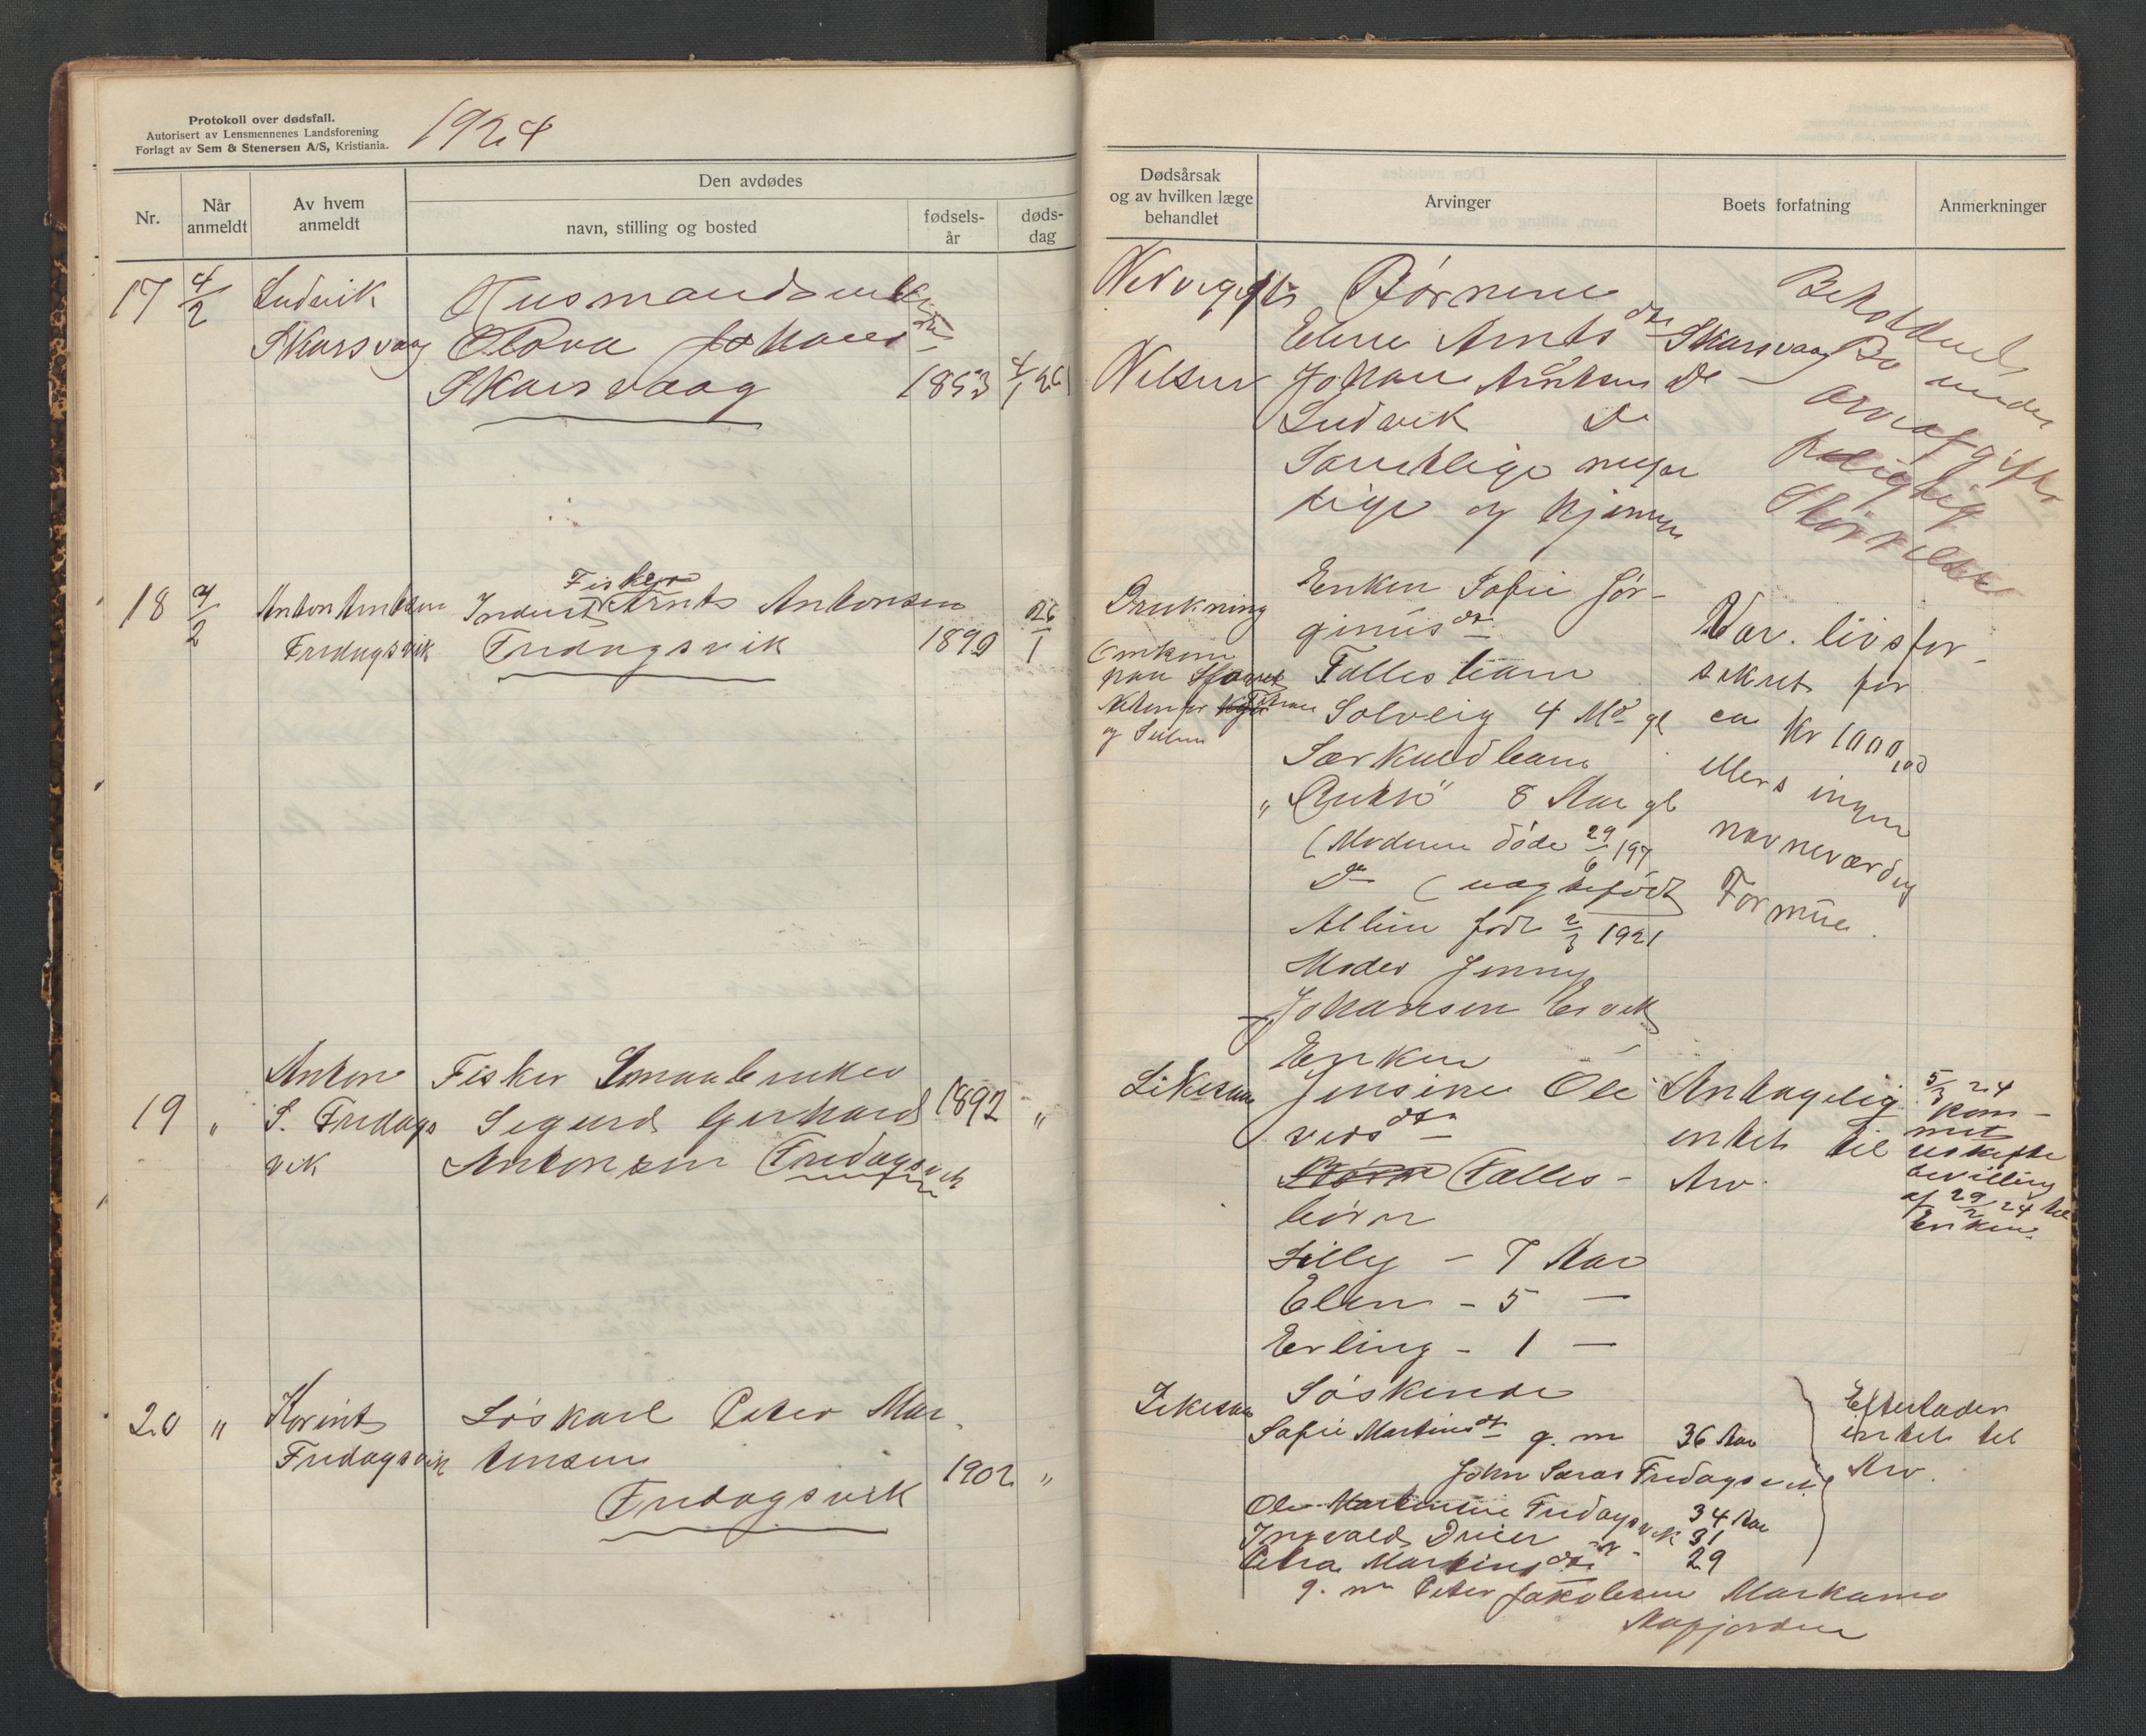 Protokoll over dødsfall.
Autorisert av Lensmennenes Landsforening
Forlagt av Sem & Stenersen A/S, Kristiania.
1924
Nr.
Når anmeldt
Av hvem anmeldt
Den avdødes
navn, stilling og bosted
fødsels-år
døds-dag
Dødsårsak
og av hvilken læge
behandlet
Arvinger
Boets forfatning
Anmerkninger
17 4/2 Ludvik
Skarsvaag
Johans
Skarsvaag 1853
Børnene
Arntsdtr Skarsvaag
Johan Arntsen Do
Ludvik Do
Samtlige myn
dige og hjemme
Beholdende
Bo
under
arveafgifts
pligtig
18 4/2 Anton Arntsen
Fredagsvik
Fisker
Arnts Antonsen
Fredagsvik 1890 26/1
Drukning
(omkom
paa
og
Enken Sofie Jør-
ginusdtr
Fællesbarn
Solveig 4 Md gl
Særkuldbarn
8 Aar gl
(Moderen døde 29/6 197
Do (uægtefødt
Albin født 2/3 1921
Moder Jenny
Johansen Ervik
Var. livsfor-
sikret for
ca Kr 1000,00
ellers ingen
navneværdig
Formue.
19 " Anton
S. Fredags
vik
Fisker Smaabruker
Sigurd Gerhard
Antonsen Fredagsvik
1892 "
Likesaa
Enken
Jensine Ole
vedsdtr
Børn Fælles-
børn
Lilly - 7 Aar
Elen - 5 —
Erling - 1 —
Antagelig
intet til
Arv.
5/3 24
Kom-
met
uskifte
bevilling
af 29/2 24 til
Enken.
20 " Korint
Fredagsvik
Løskarl Peter Mar
tinsen
Fredagsvik
1902 "
Likesaa
Søskende
Sofie Martinsdtr g. m 36 Aar
John Saras Fredagsvik
Ole Martinsen Fredagsvik 34 Aar
Ingvald Drier 31
Petra Martinsdtr 29
g. m Peter Jakobsen
Efterlader
intet til
Arv.